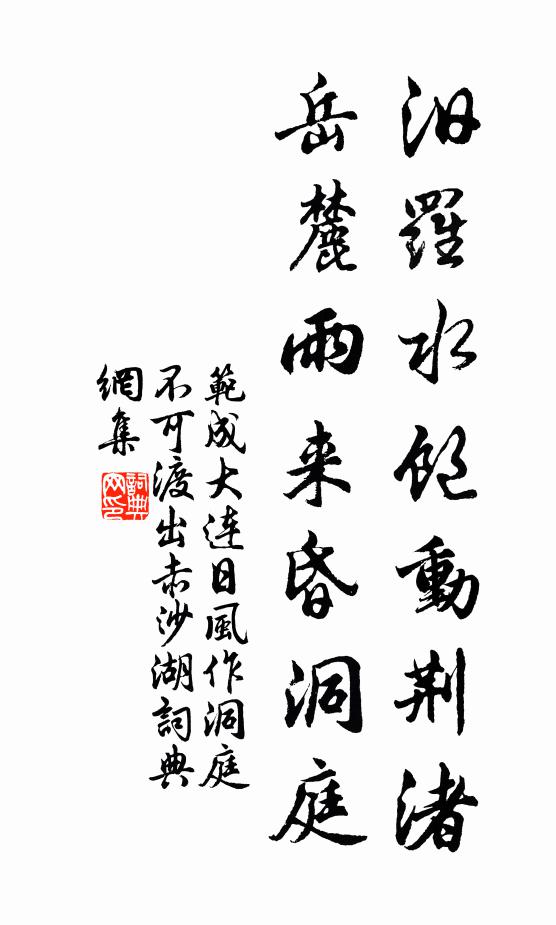 汨羅水飽動荊渚
岳麓雨来昏洞庭
範成大連日風作洞庭
不可渡出赤沙湖詞典
網集
詞典
网印